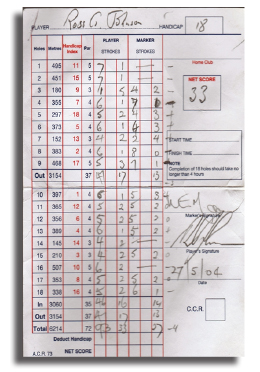 PLAYER Ross G. Johnson HANDICAP 18
Holes Metres Handicap Index Par PLAYER STROKES MARKER STROKES
Home Club
1 495 11 5 7 1 — –
2 451 15 5 7 1 — –
NET SCORE
33
3 180 9 3 4 5 4 2
4 355 7 4 6 1
5 297 18 4 5 2 4 3
6 373 5 4 6 1 4 3
7 152 13 3 4 2 2 4
START TIME
8 383 2 4 6
FINISH TIME
9 468 17 5
NOTE
Completion of 18 holes should take no longer than 4 hours
Out 3154 37 17
10 397 1 4 6 1 5 3
11 365 12 4 5 2 5 2
12 356 6 4 5 2 5 2
Marker's Signature
13 380 4 4 6 1 5 2
14 145 14 3 4 2 —
Player's Signature
15 210 3 3 4 2 5 2
16 507 10 5 6 2 —
27/5/04
Date
17 353 8 4 5 2 5 2
18 338 16 4 5 2 6 1
In 3060 35 16 14
C.C.R.
Out 3154 37 17
Total 6214 72
Deduct Handicap
A.C.R. 73 NET SCORE